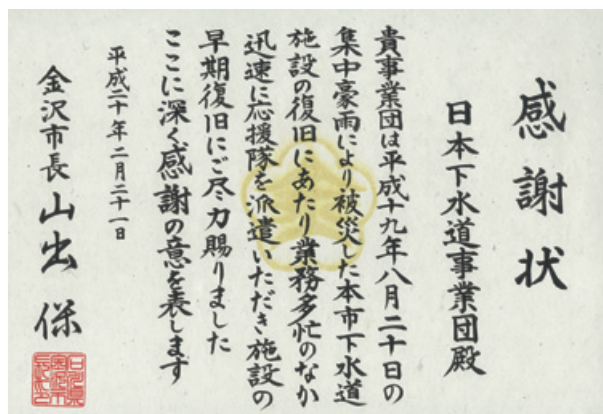 感謝状
日本下水道事業団殿
貴事業団は平成十九年八月二十日の
集中豪雨により被災した本市下水道
施設の復旧にあたり業務多忙のなか
迅速に応援隊を派遣いただき施設の
早期復旧にご尽力賜りました
ここに深く感謝の意を表します
平成二十年二月二十一日
金沢市長 山出 保